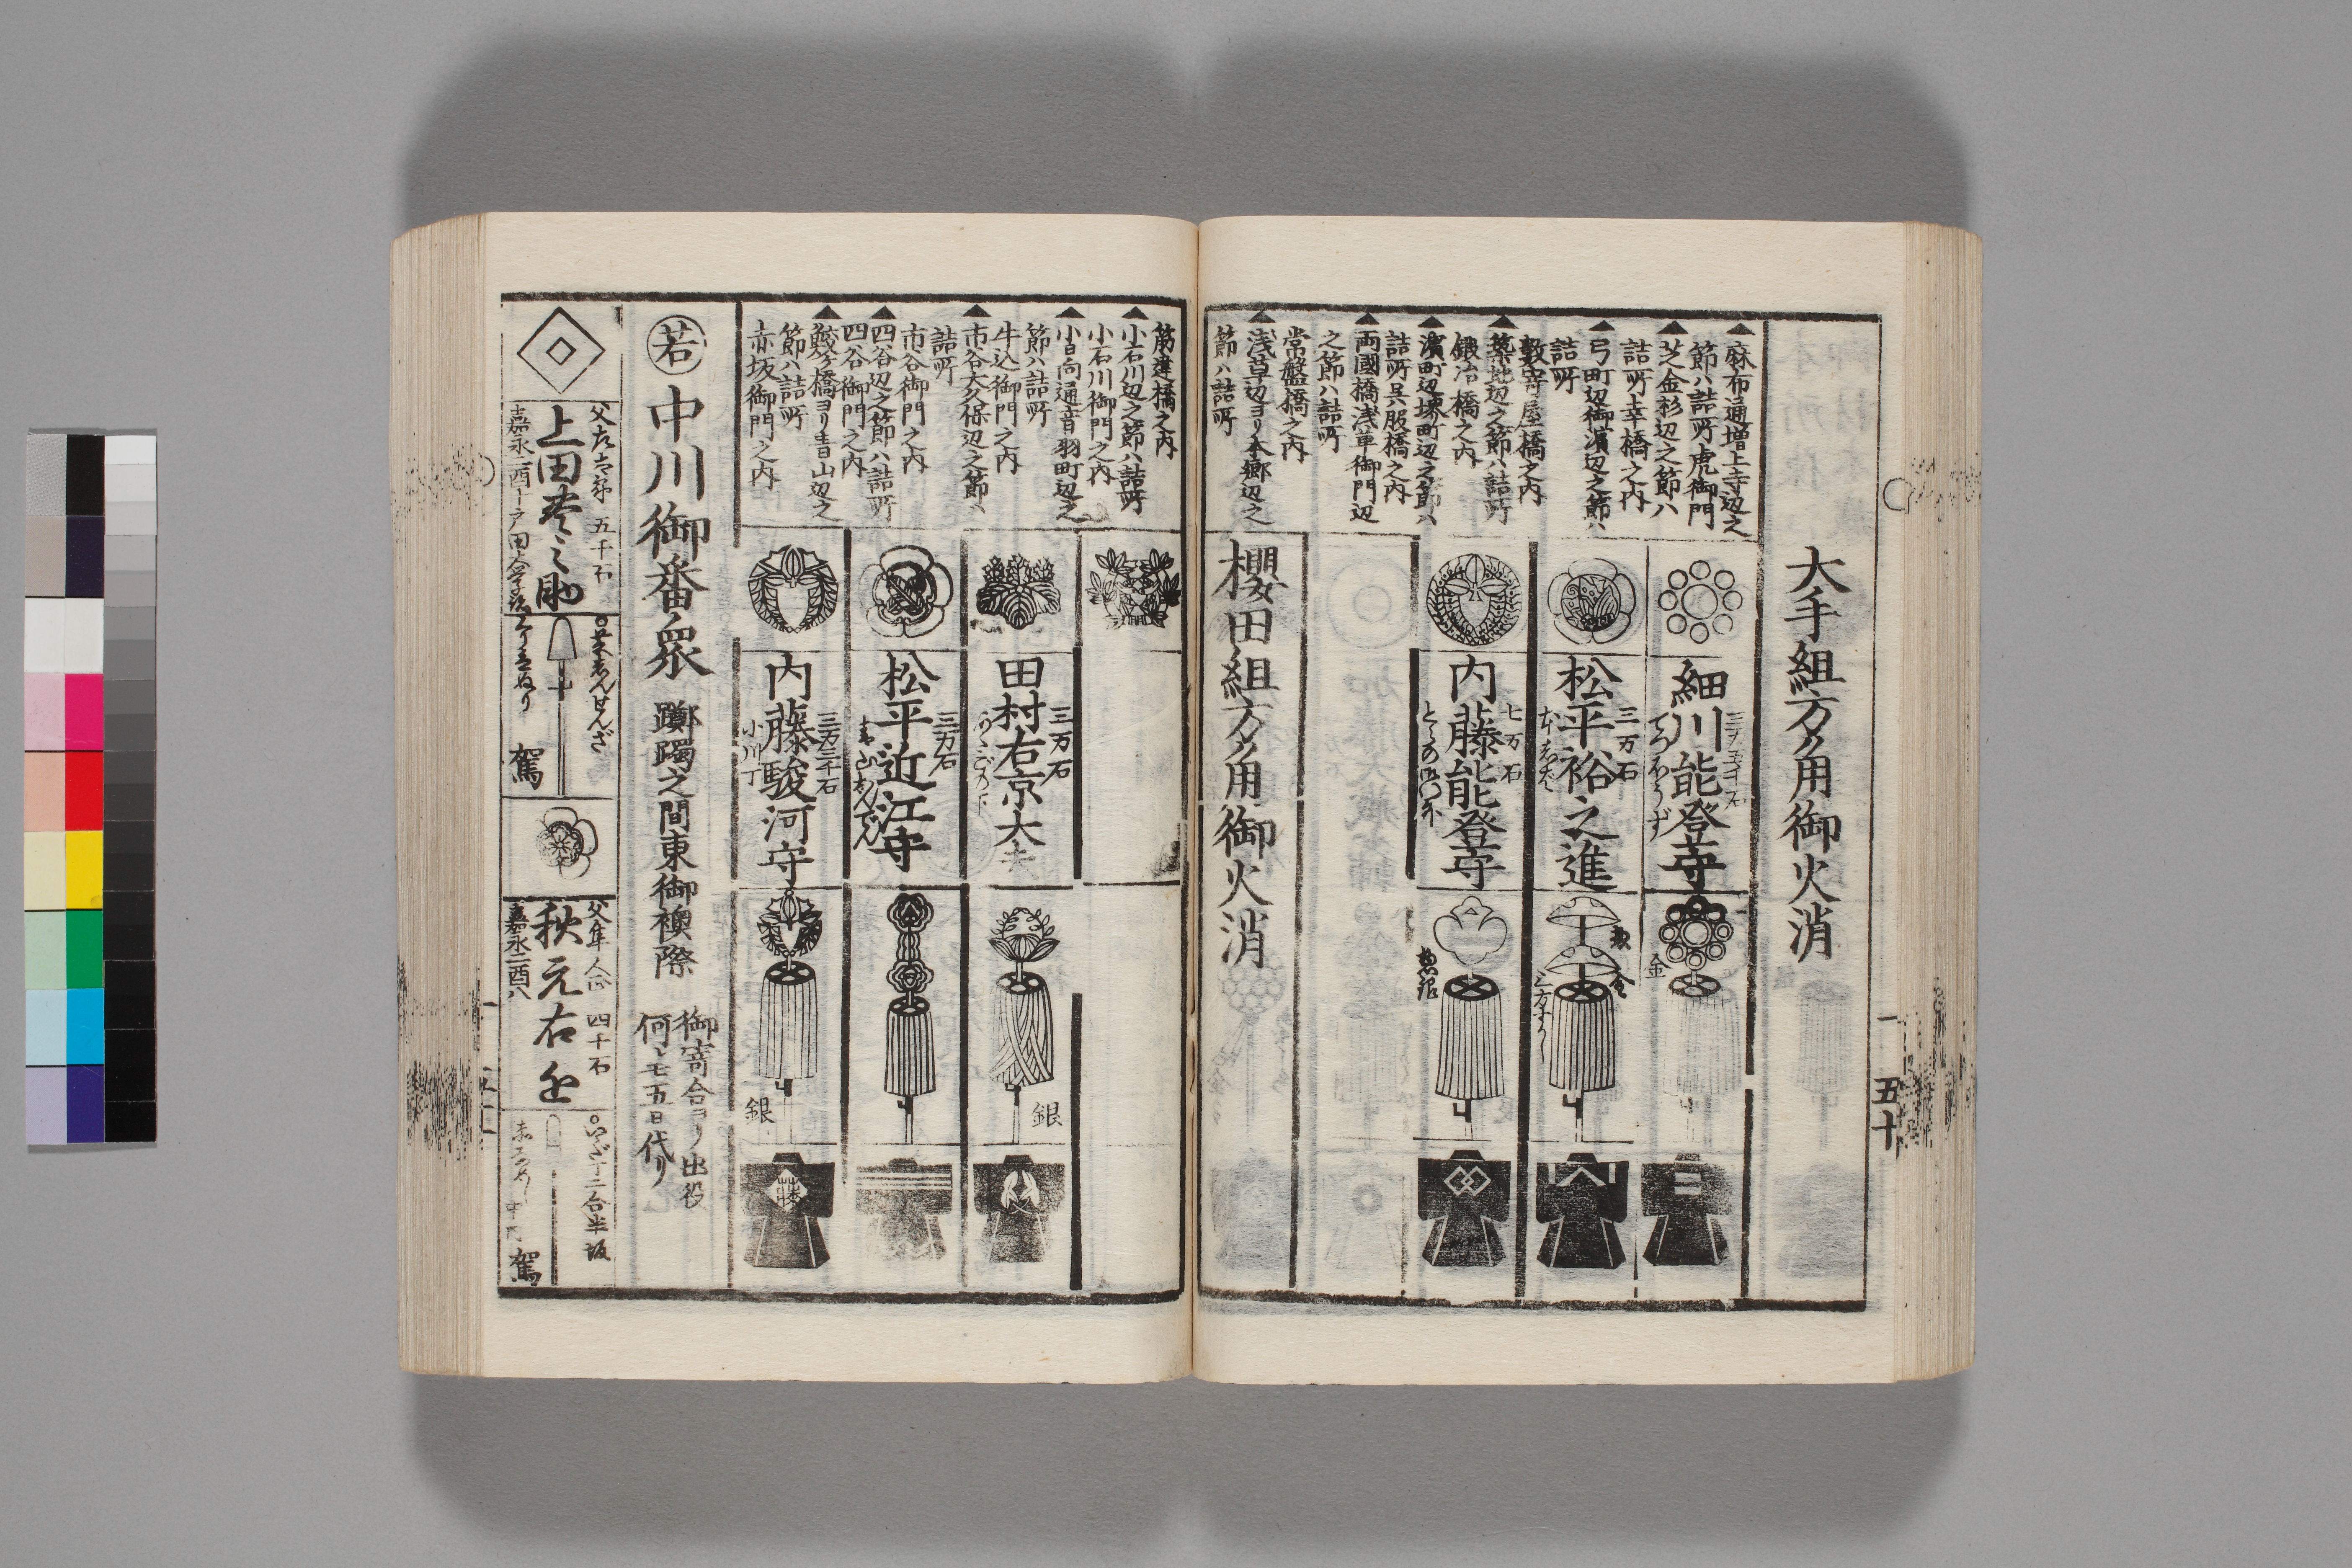 大手組方角御火消
▲麻布通増上寺辺之
節ハ詰所虎御門
▲芝金杉辺之節ハ
詰所幸橋之内
▲弓町辺御濱辺之節ハ
詰所
数寄屋橋之内
▲築地辺之節ハ詰所
鍛冶橋之内
▲濱町辺堺町辺之節ハ
詰所呉服橋之内
▲両國橋浅草御門辺
之節ハ詰所
常盤橋之内
▲浅草辺ヨリ本郷辺之
節ハ詰所
細川能登守
金
三万石
松平裕之進
七万石
内藤能登守
櫻田組方角御火消
五十
筋違橋之内
▲小石川辺之節ハ詰所
小石川御門之内
▲小日向通音羽町辺之
節ハ詰所
牛込御門之内
▲市谷大久保辺之節ハ
詰所
市谷御門之内
▲四谷辺之節ハ詰所
四谷御門之内
▲鮫ヶ橋ヨリ青山辺之
節ハ詰所
赤坂御門之内
三万石
田村右京大夫
銀
三万石
松平近江守
三万三千石
内藤駿河守
小川丁
銀
若 中川御番衆
躑躅之間東御襖際
御寄合ヨリ出役
何レモ五日代リ
五千石
上田
駕
四千石
秋元
嘉永二酉八
駕